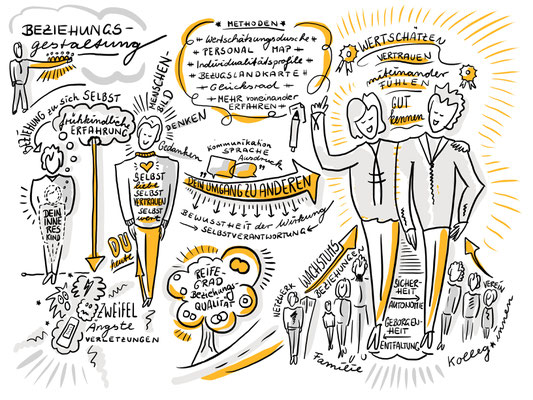 BEZIEHUNGS-
gestaltung
METHODEN
Wertschätzungsdusche
PERSONAL MAP
Individualitätsprofile
BEZUGSLANDKARTE
Glücksrad
MEHR voneinander
ERFAHREN
WERTSCHÄTZEN
VERTRAUEN
miteinander
FÜHLEN
GUT
kennen
BEZIEHUNG zu sich SELBST
frühkindliche
ERFAHRUNG
MENSCHEN-
BILD
DENKEN
Gedanken
Kommunikation
SPRACHE
Ausdruck
DEIN UMGANG ZU ANDEREN
BEWUSSTHEIT der Wirkung
SELBSTVERANTWORTUNG
SELBST
liebe
SELBST
VERTRAUEN
SELBST
wert
DEIN
INNE
RES
KIND
DU
heute
ZWEIFEL
Ängste
VERLETZUNGEN
REIFE-
GRAD
Beziehungs
QUALITÄT
WACHSTUMS
BEZIEHUNGEN
NETZWERK
Familie
SICHER-
HEIT
AUTONOMIE
GEBORGEN-
HEIT
ENTFALTUNG
VEREIN
Kolleg*innen